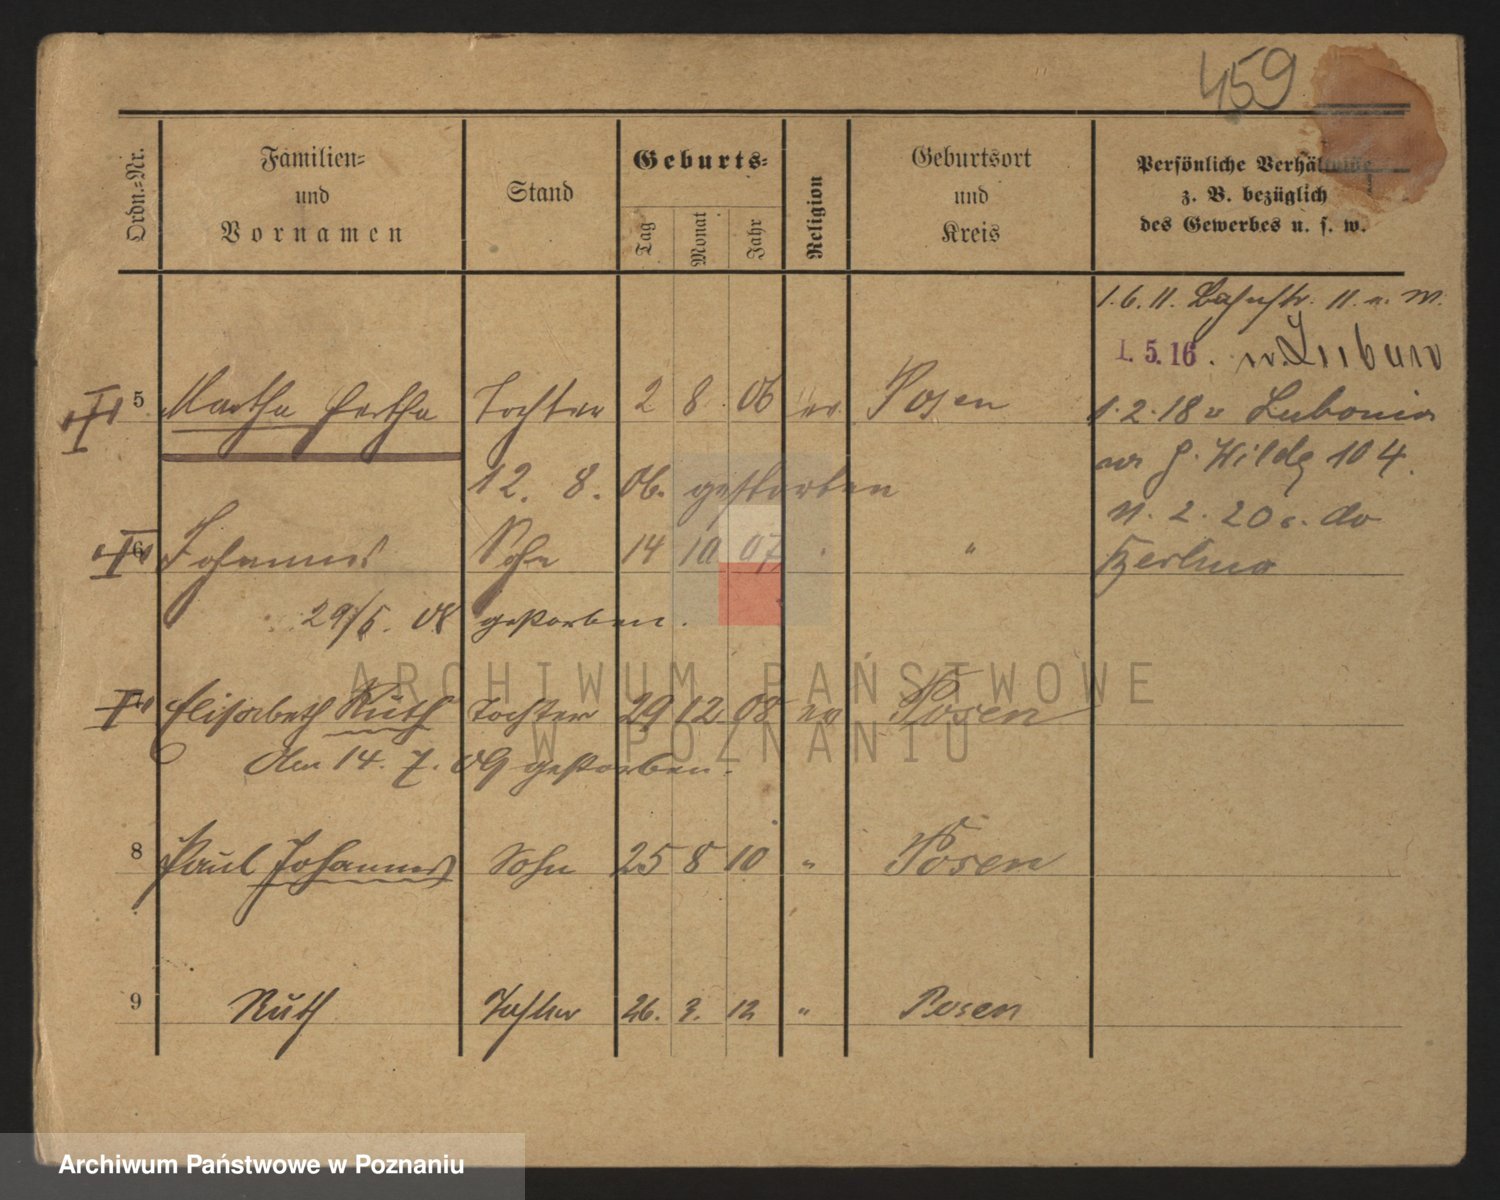 459
Ordn.-Nr.
Familien-
und
Vornamen
Stand
Geburts-
Tag
Monat
Jahr
Religion
Geburtsort
und
Kreis
Persönliche Verhältnisse
z. B. bezüglich
des Gewerbes u. s. w.
1.6.11. Bahnstr. 11. n. W.
1. 5. 16. n. Luban
5 Martha Hertha Tochter 2 8 06 ev. Posen
1.2.18 v Lubonia
12. 8. 06. gestorben
n. G. Wilda 104.
11. 2. 20 v. do
6 Johannes Sohn 14 10 07 " "
Berlina
29/5. 08 gestorben.
Elisabeth Ruth Tochter 29 12 08 ev Posen
den 14. 7. 09 gestorben.
8 Paul Johannes Sohn 25 8 10 " Posen
9 Ruth Tochter 26. 3. 12 " Posen
ARCHIWUM PAŃSTWOWE
W POZNANIU
Archiwum Państwowe w Poznaniu